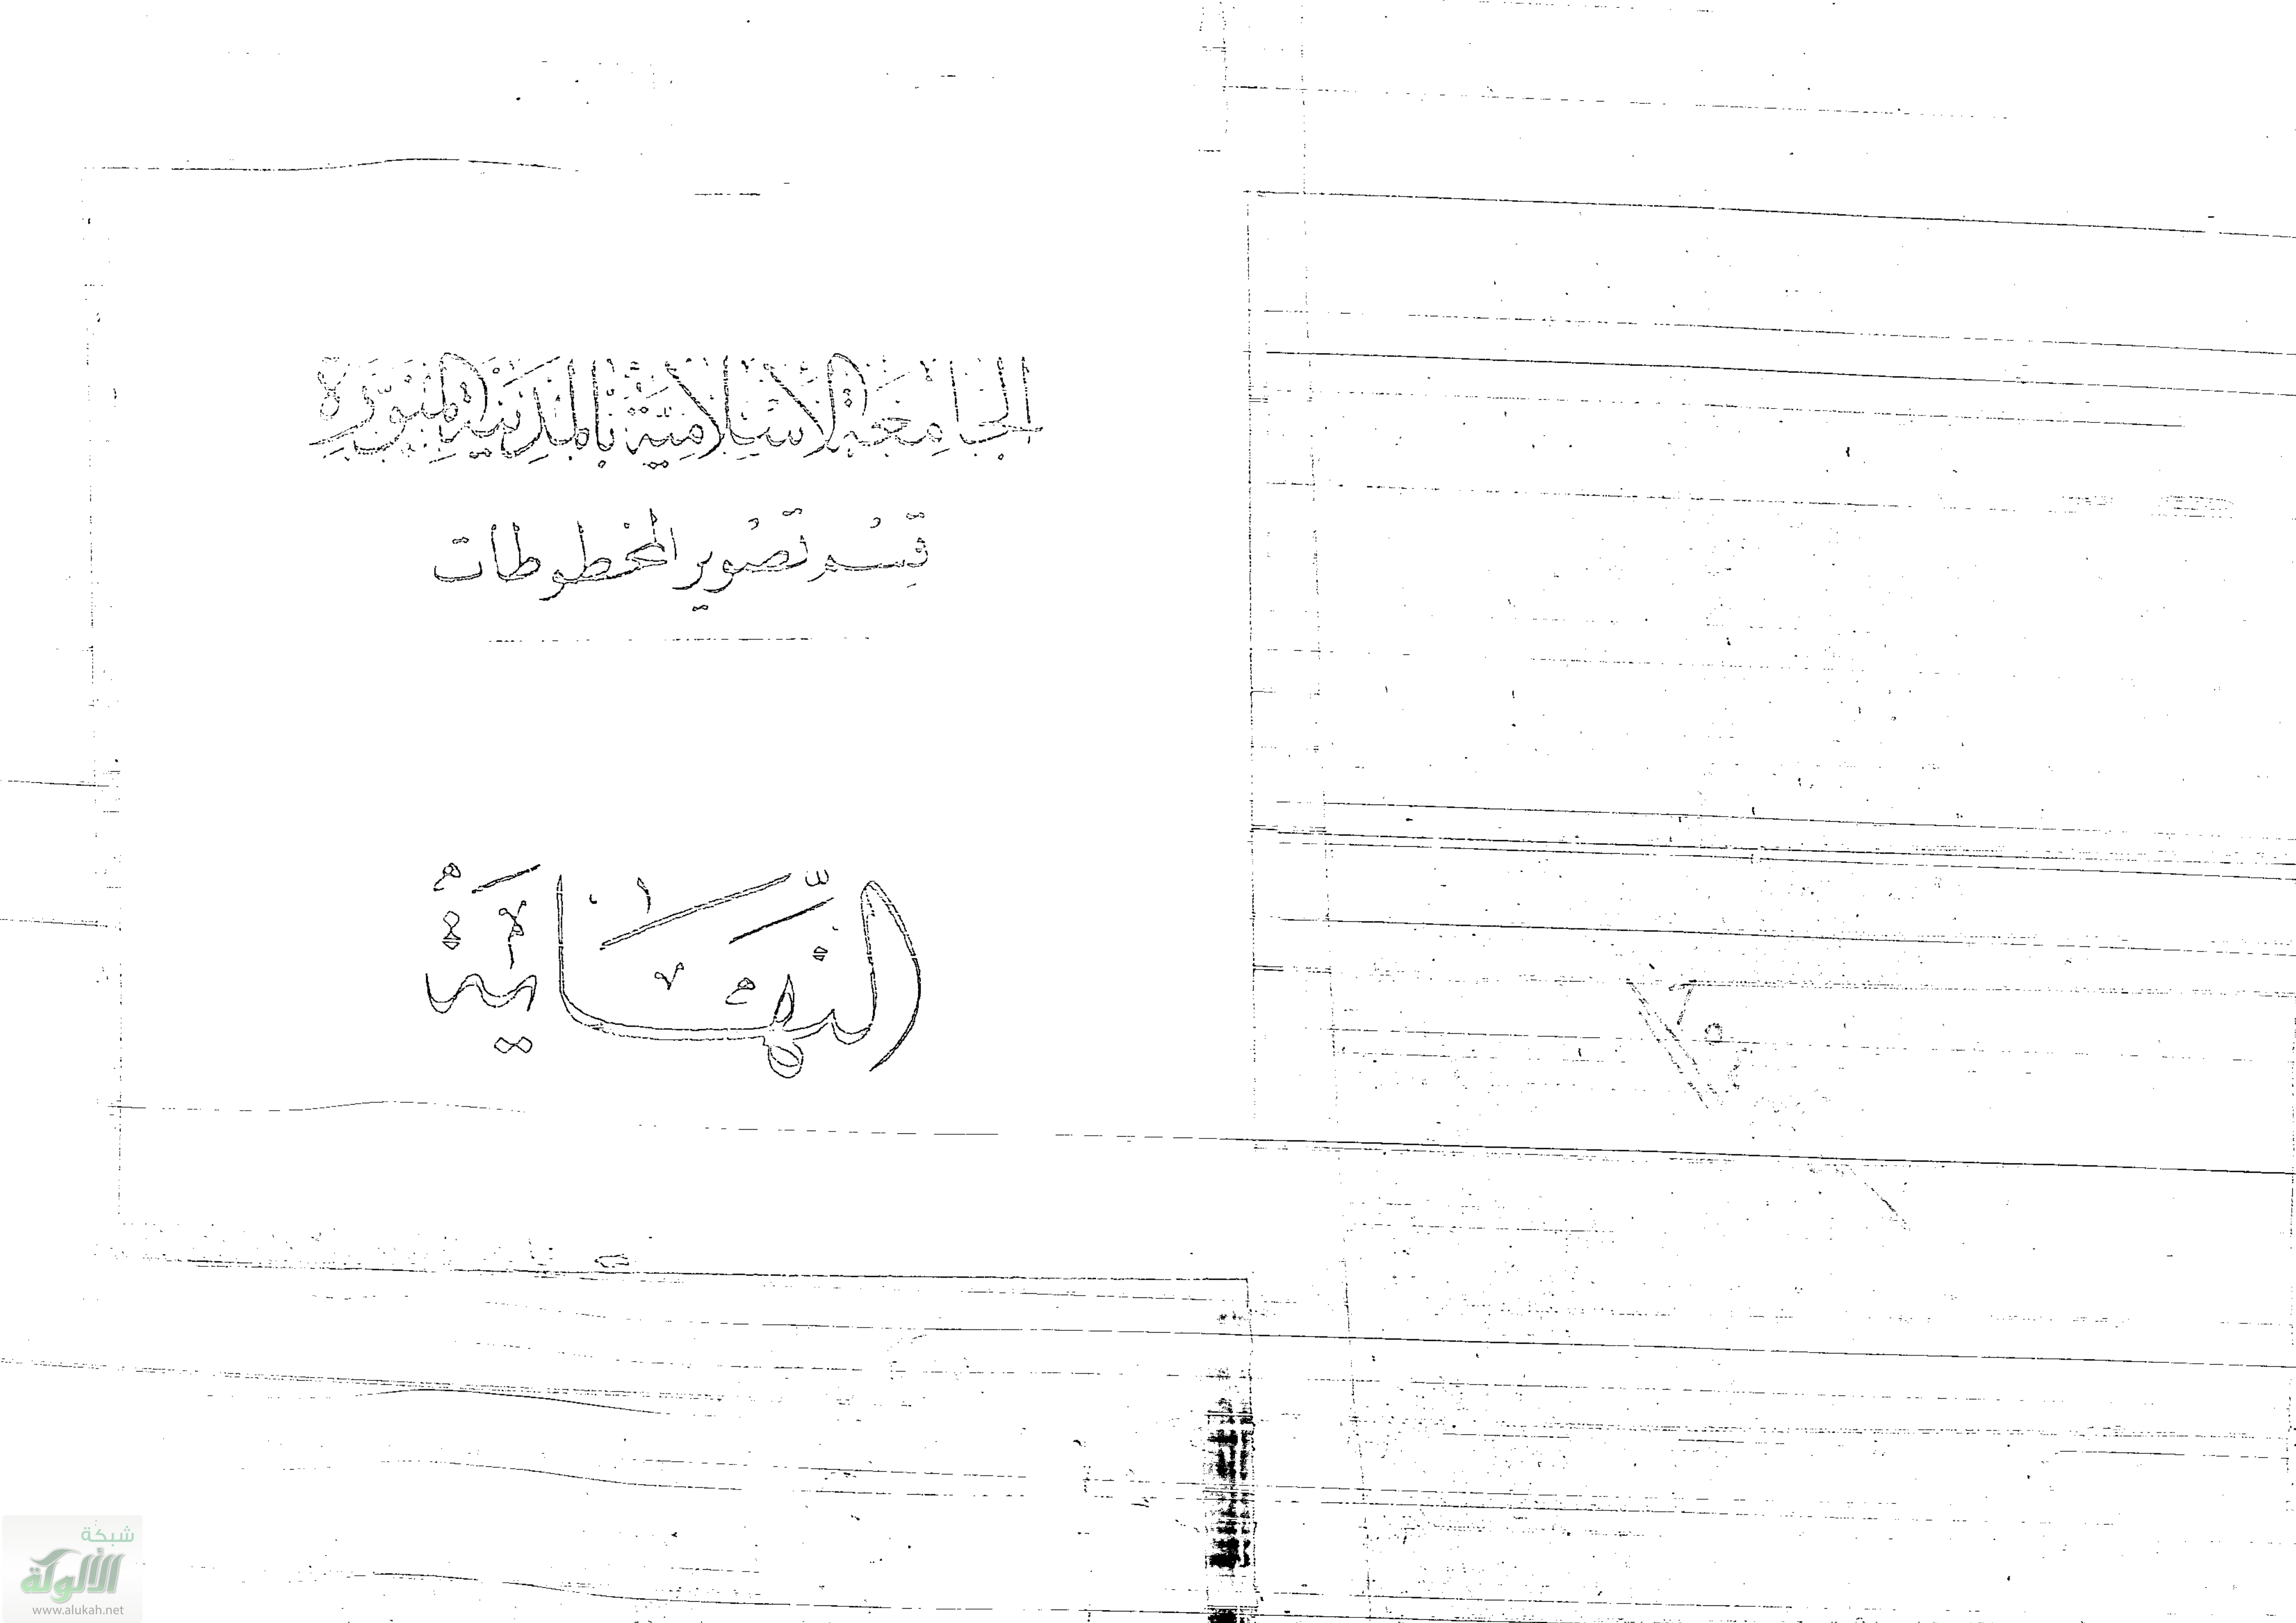 الجامعة الاسلامية بالمدينة المنورة
قسم تصوير المخطوطات
النهاية
شبكة
الألوكة
www.alukah.net